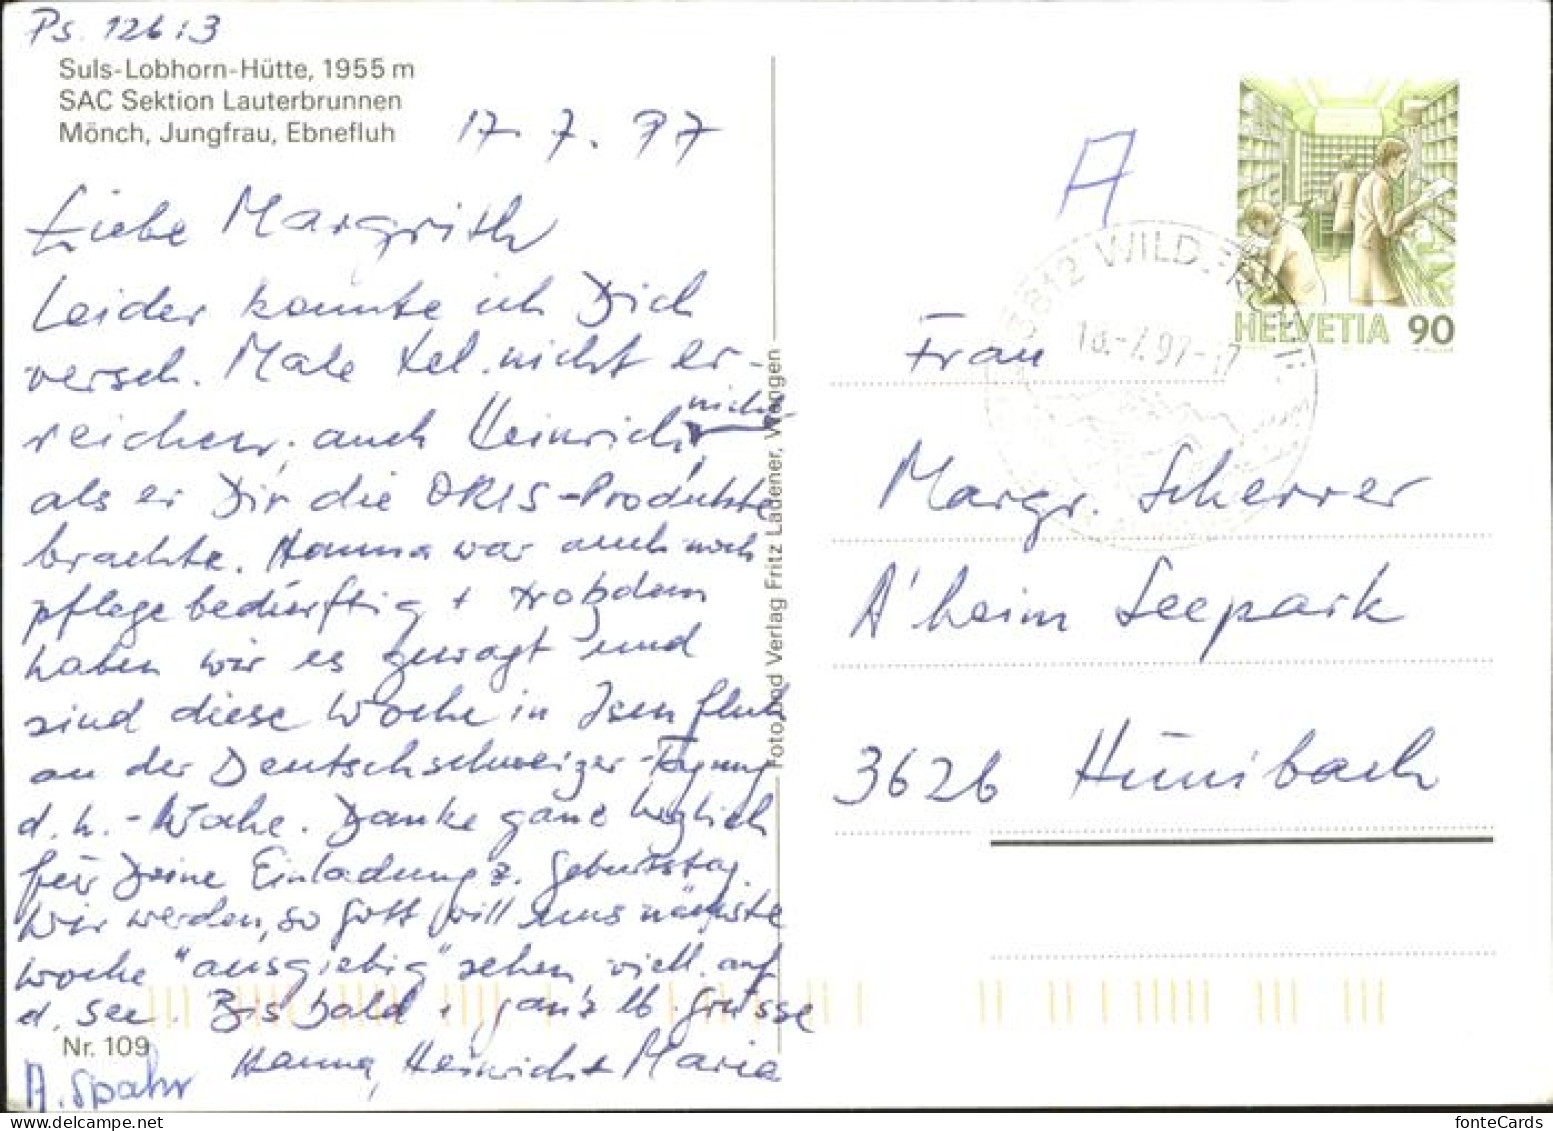 Ps. 126:3
Suls-Lobhorn-Hütte, 1955 m
SAC Sektion Lauterbrunnen
Mönch, Jungfrau, Ebnefluh
17. 7. 97
Liebe Margrith
Leider konnte ich Dich
versch. Male tel. nicht er-
reichen, auch Heinrich nicht
als er Dir die ORIS-Produkte
brachte. Hanna war auch noch
pflegebedürftig + trotzdem
haben wir es gewagt und
sind diese Woche in Isenfluh
an der Deutschschweizer-Tagung
d.h. -Woche. Danke ganz herzlich
für Deine Einladung z. Geburtstag.
Wir werden, so Gott will uns nächste
Woche "ausgiebig" sehen viell. auf
d. See. Bis bald + ganz lb. Grüsse
Hanna, Heinrich + Maria
Nr. 109
A. Spahr
Foto und Verlag Fritz Ladener, Wengen
A
HELVETIA 90
3812 WILDERSWIL
18.-7.97-17
Frau
Margr. Scherrer
A'heim Seepark
3626 Hünibach
fonteCards